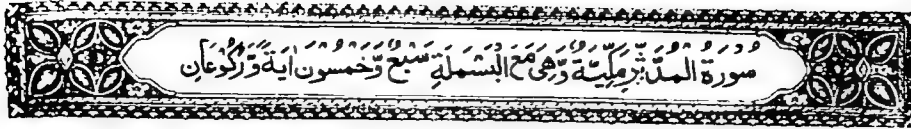 سُورَةُ الْمُدَّثِّرِ مَكِّيَّةٌ وَّهِیَ مَعَ الْبَسْمَلَةِ سَبْعٌ وَّخَمْسُوْنَ اٰيَةً وَّرُكُوْعَانِ